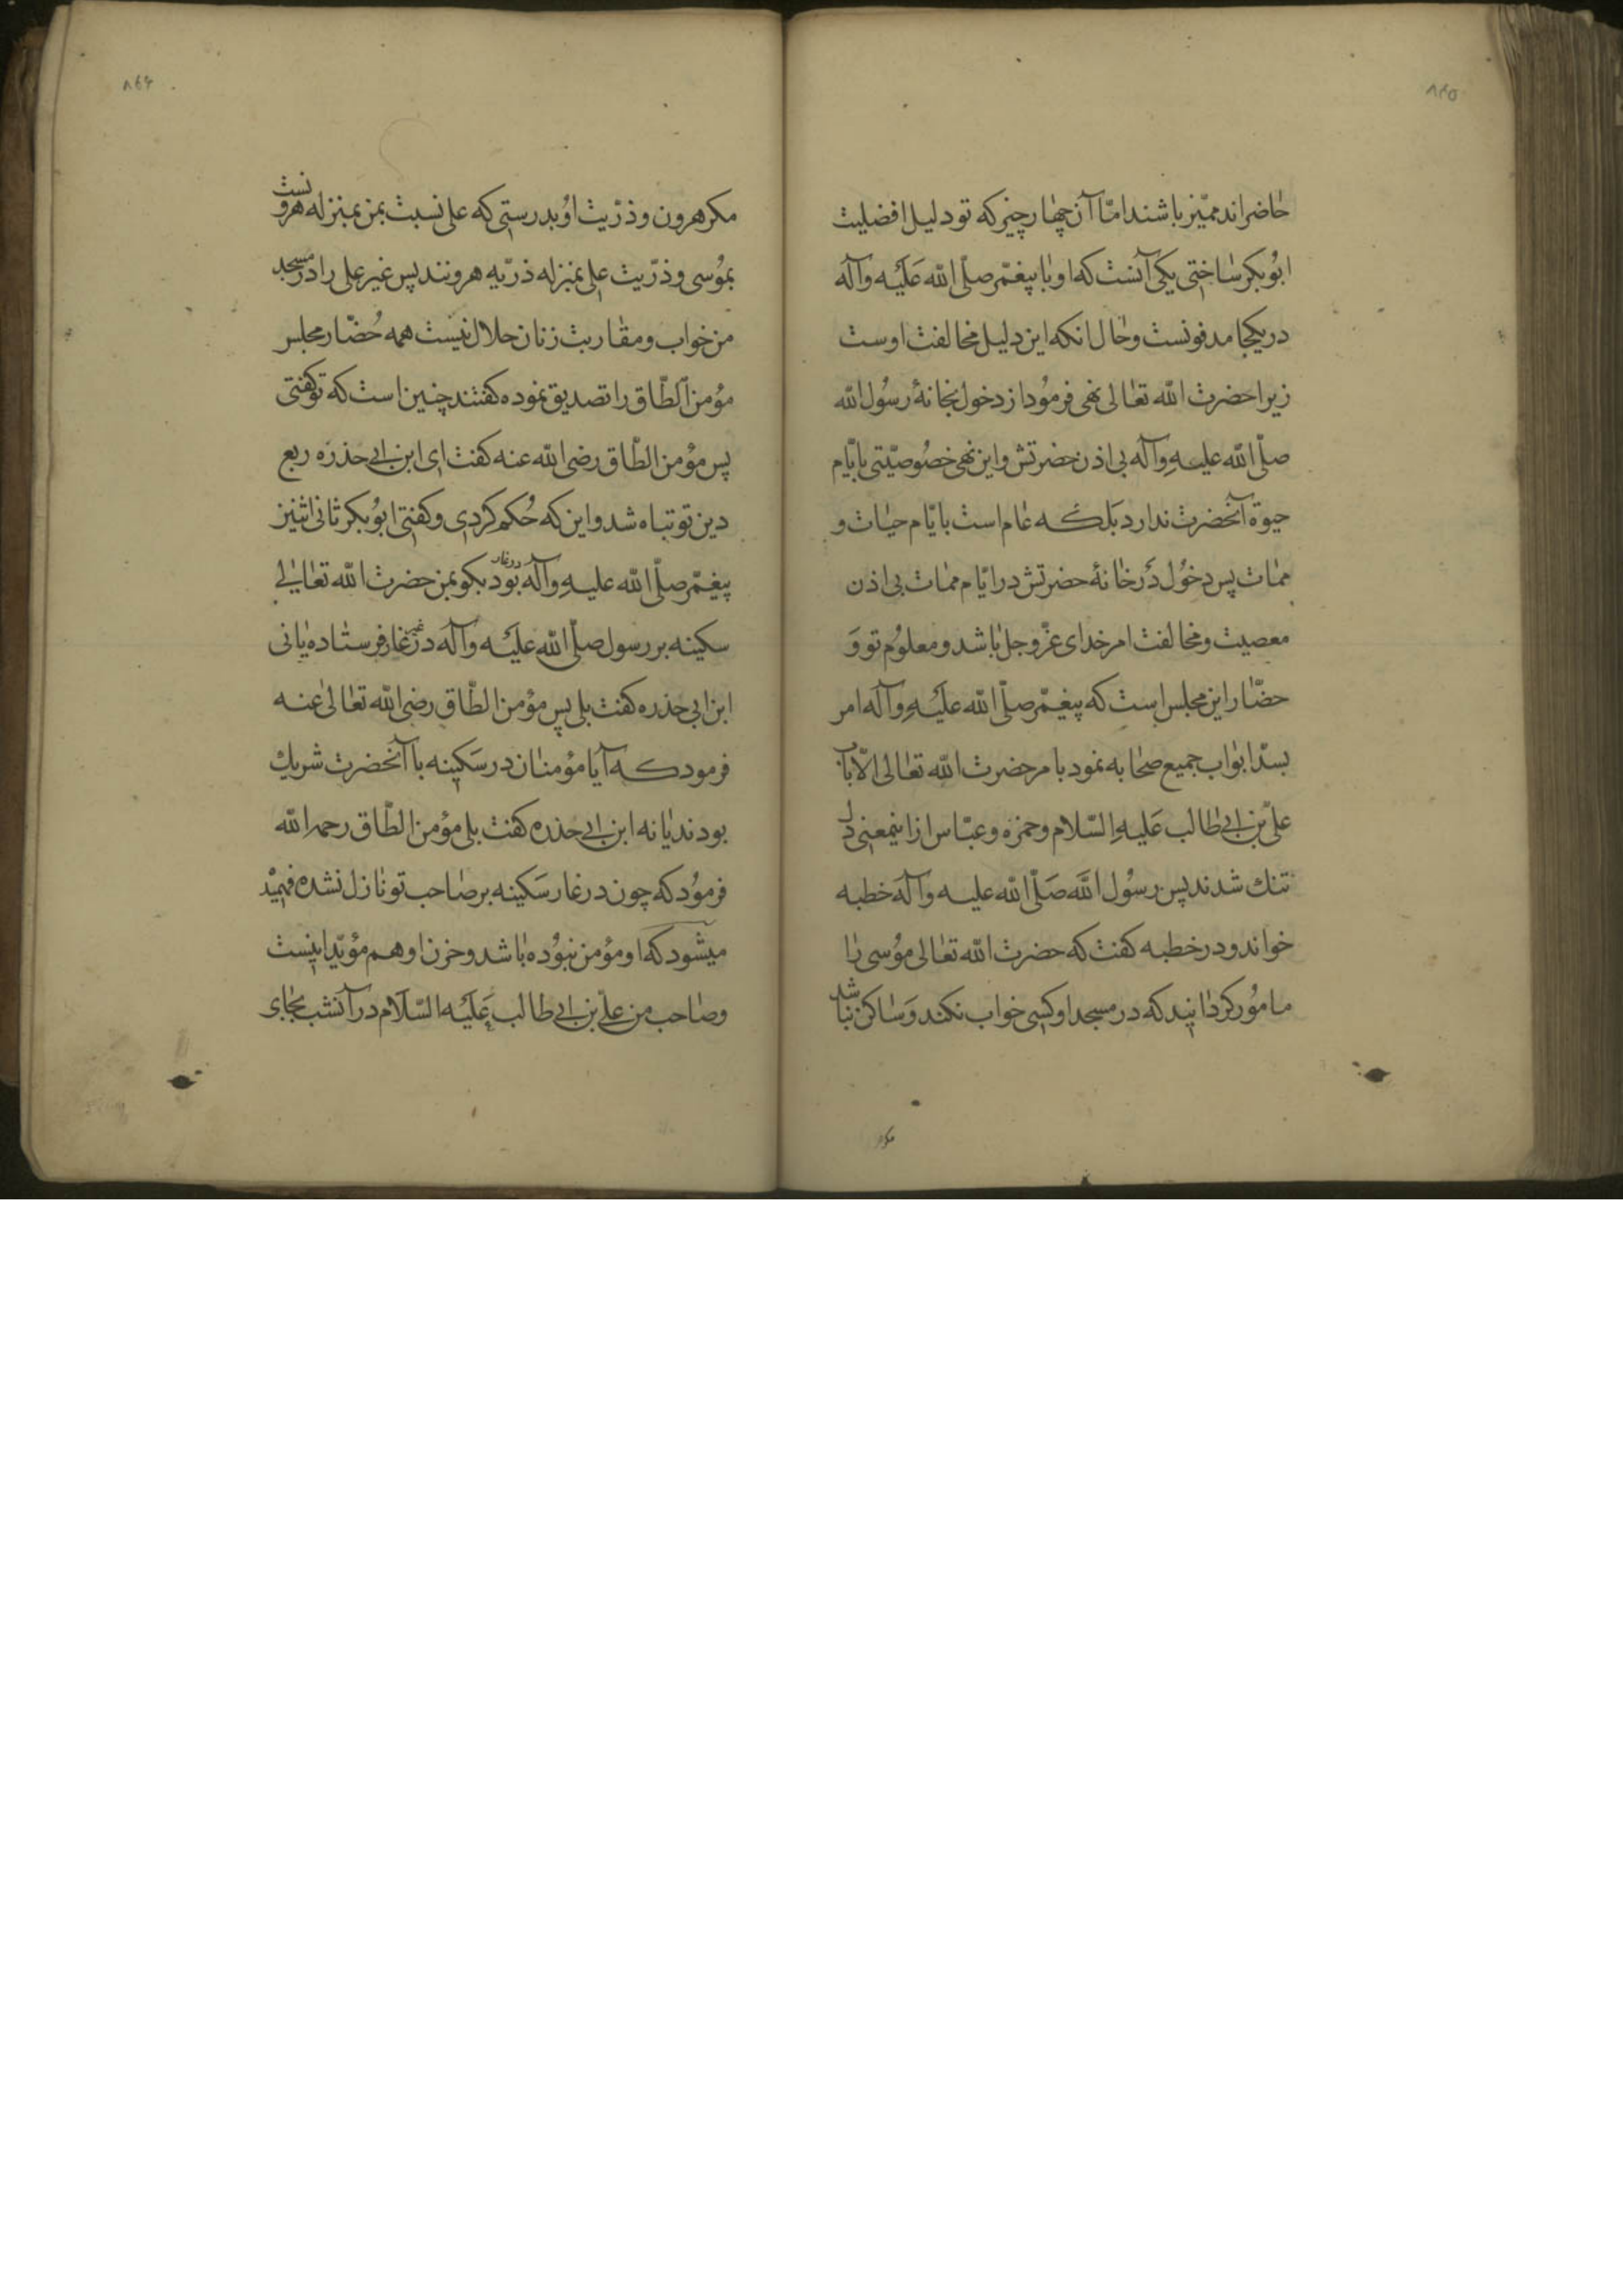 ۸۶۵
حاضراند ممیّز باشند امّا آن چهار چیز که تو دلیل افضلیت
ابوبکر ساختی یکی آنست که او با پیغمّر صلّی الله علیه وآله
در یکجا مدفونست وحال انکه این دلیل مخالفت اوست
زیرا حضرت الله تعالی نهی فرمود از دخول بخانهٔ رسول الله
صلّی الله علیه وآله بی اذن حضرتش واین نهی خصوصیّتی بایّام
حیوة آنحضرت ندارد بلکه عام است بایّام حیات و
ممات پس دخول در خانهٔ حضرتش در ایّام ممات بی اذن
معصیت ومخالفت امر خدای عزّوجل باشد ومعلوم تو و
حضّار این مجلس است که پیغمّر صلّی الله علیه وآله امر
بسدّ ابواب جمیع صحابه نمود بامر حضرت الله تعالی الّا باب
علیّ بن ابی طالب علیه السّلام وحمزه وعبّاس ازاینمعنی دل
تنك شدند پس رسول الله صلّی الله علیه وآله خطبه
خواند ودر خطبه کفت که حضرت الله تعالی موسی را
مامور کردانید که در مسجد او کسی خواب نکند وساکن نباشد
مکر
۸۶۴
مکر هرون وذرّیت او بدرستی که علی نسبت بمن بمنزله هرونست
بموسی وذرّیت علی بمنزله ذرّیه هرونند پس غیر علی را در مسجد
من خواب ومقاربت زنان حلال نیست همه حُضّار مجلس
مؤمن الطّاق را تصدیق نموده کفتند چنین است که تو کفتی
پس مؤمن الطّاق رضی الله عنه کفت ای ابن ابی حذره ربع
دین تو تباه شد واین که حُکم کردی وکفتی ابوبکر ثانی اثنین
پیغمّر صلّی الله علیه وآله در غار بود بکو بمن حضرت الله تعالی
سکینه بر رسول صلّی الله علیه وآله در غیر غار فرستاده یا نی
ابن ابی حذره کفت بلی پس مؤمن الطّاق رضی الله تعالی عنه
فرمود که آیا مؤمنان در سکینه با آنحضرت شریك
بودند یا نه ابن ابی حذره کفت بلی مؤمن الطّاق رحمه الله
فرمود که چون در غار سکینه بر صاحب تو نازل نشده فهمید
میشود که او مؤمن نبوده باشد وحزن او هم مؤیّد اینست
وصاحب من علیّ بن ابی طالب علیه السّلام در آنشب بجای